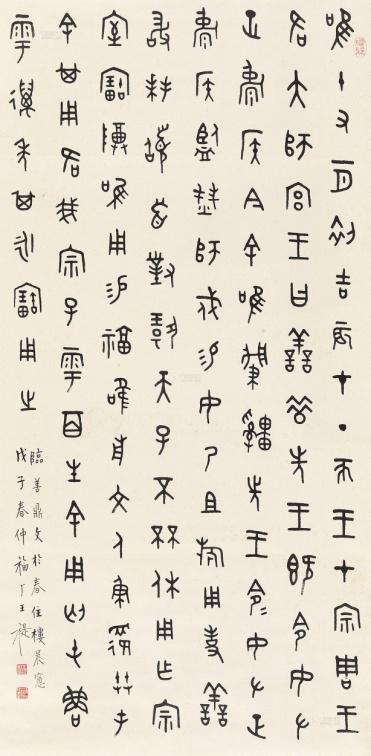 唯十又一月初吉辰才丁亥王才宗周王
各大師宮王曰譱昔先王既令女左
疋侯今余唯肇先王令令女左疋
侯監師戍易女乃且旂用事譱
敢拜首對揚皇天子不休用乍宗
室寶唯用妥福唬前文人秉德共屯
余其用各我宗子雩百生余用匄屯魯
雩萬年其永寶用之
臨善鼎文於春住樓晨窗
戊子春仲福厂王禔